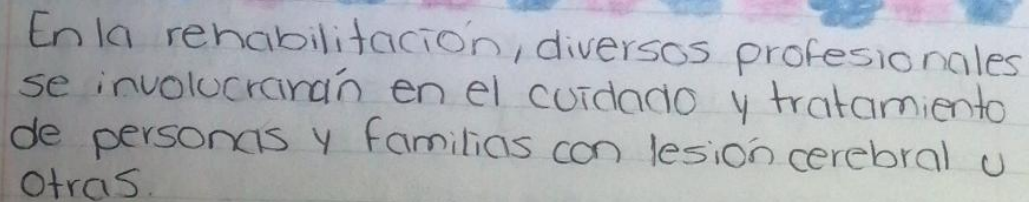 En la rehabilitación, diversos profesionales
se involucrarán en el cuidado y tratamiento
de personas y familias con lesión cerebral u
otras.